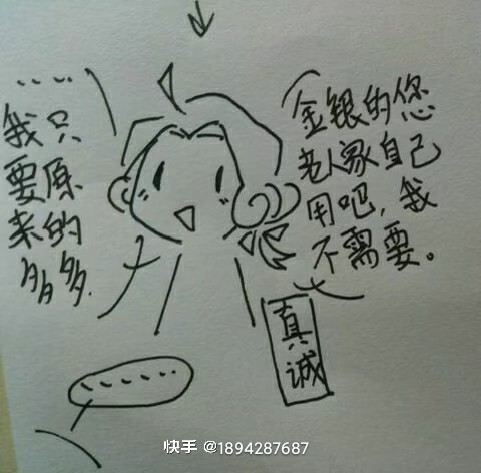 金银的您
老人家自己
用吧，我
不需要。
……
我只
要原
来的
多多.
真诚
……
快手 @1894287687